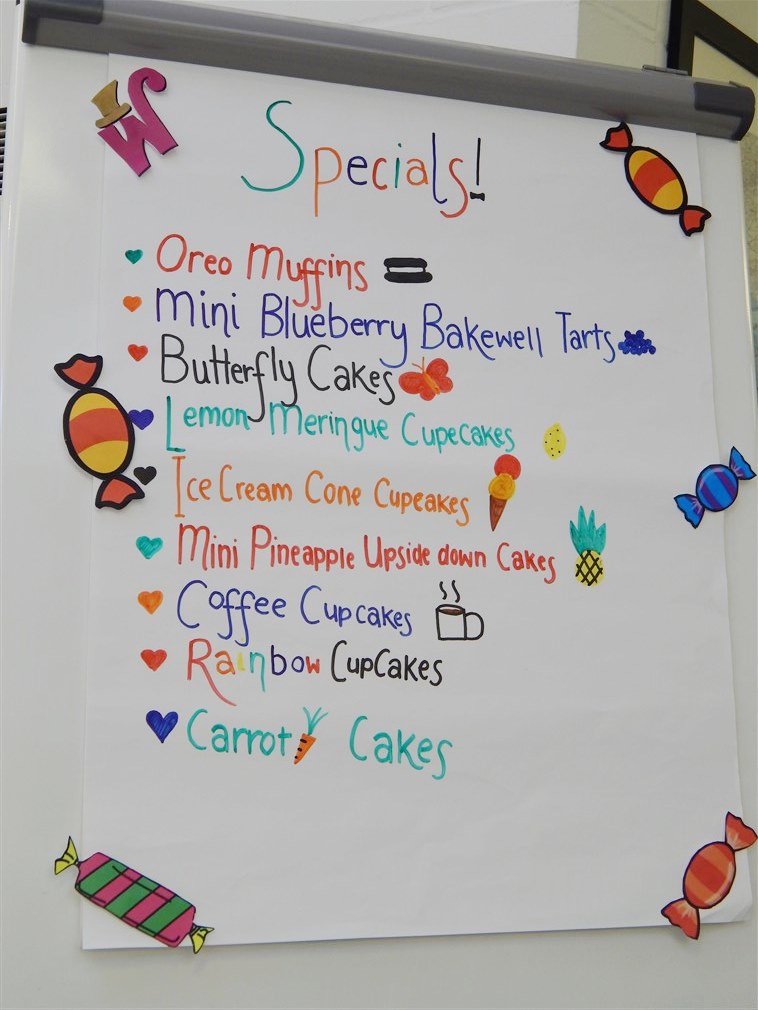 W
Specials!
Oreo Muffins
Mini Blueberry Bakewell Tarts
Butterfly Cakes
Lemon Meringue Cupecakes
Ice Cream Cone Cupcakes
Mini Pineapple Upside down Cakes
Coffee Cupcakes
Rainbow CupCakes
Carrot Cakes